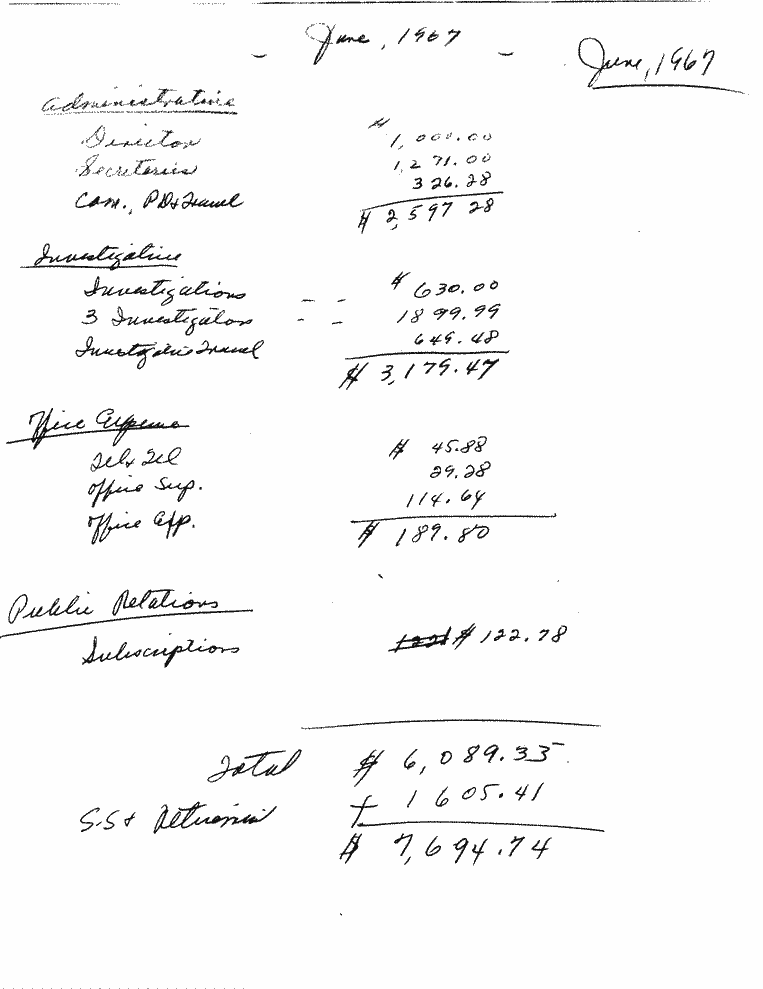 June, 1967
June, 1967
Administrative
Director $ 1,000.00
Secretaries 1,271.00
Com., PD & Travel 326.28
$ 2,597 28
Investigative
Investigations -- $ 630.00
3 Investigators -- 1899.99
Investigative Travel 649.48
$ 3,179.47
Office Expense
Tel & Tel $ 45.88
Office Sup. 29.28
Office Exp. 114.64
$ 189.80
Public Relations
Subscriptions $ 122.78
Total $ 6,089.33
S.S & Retirement + 1605.41
$ 7,694.74